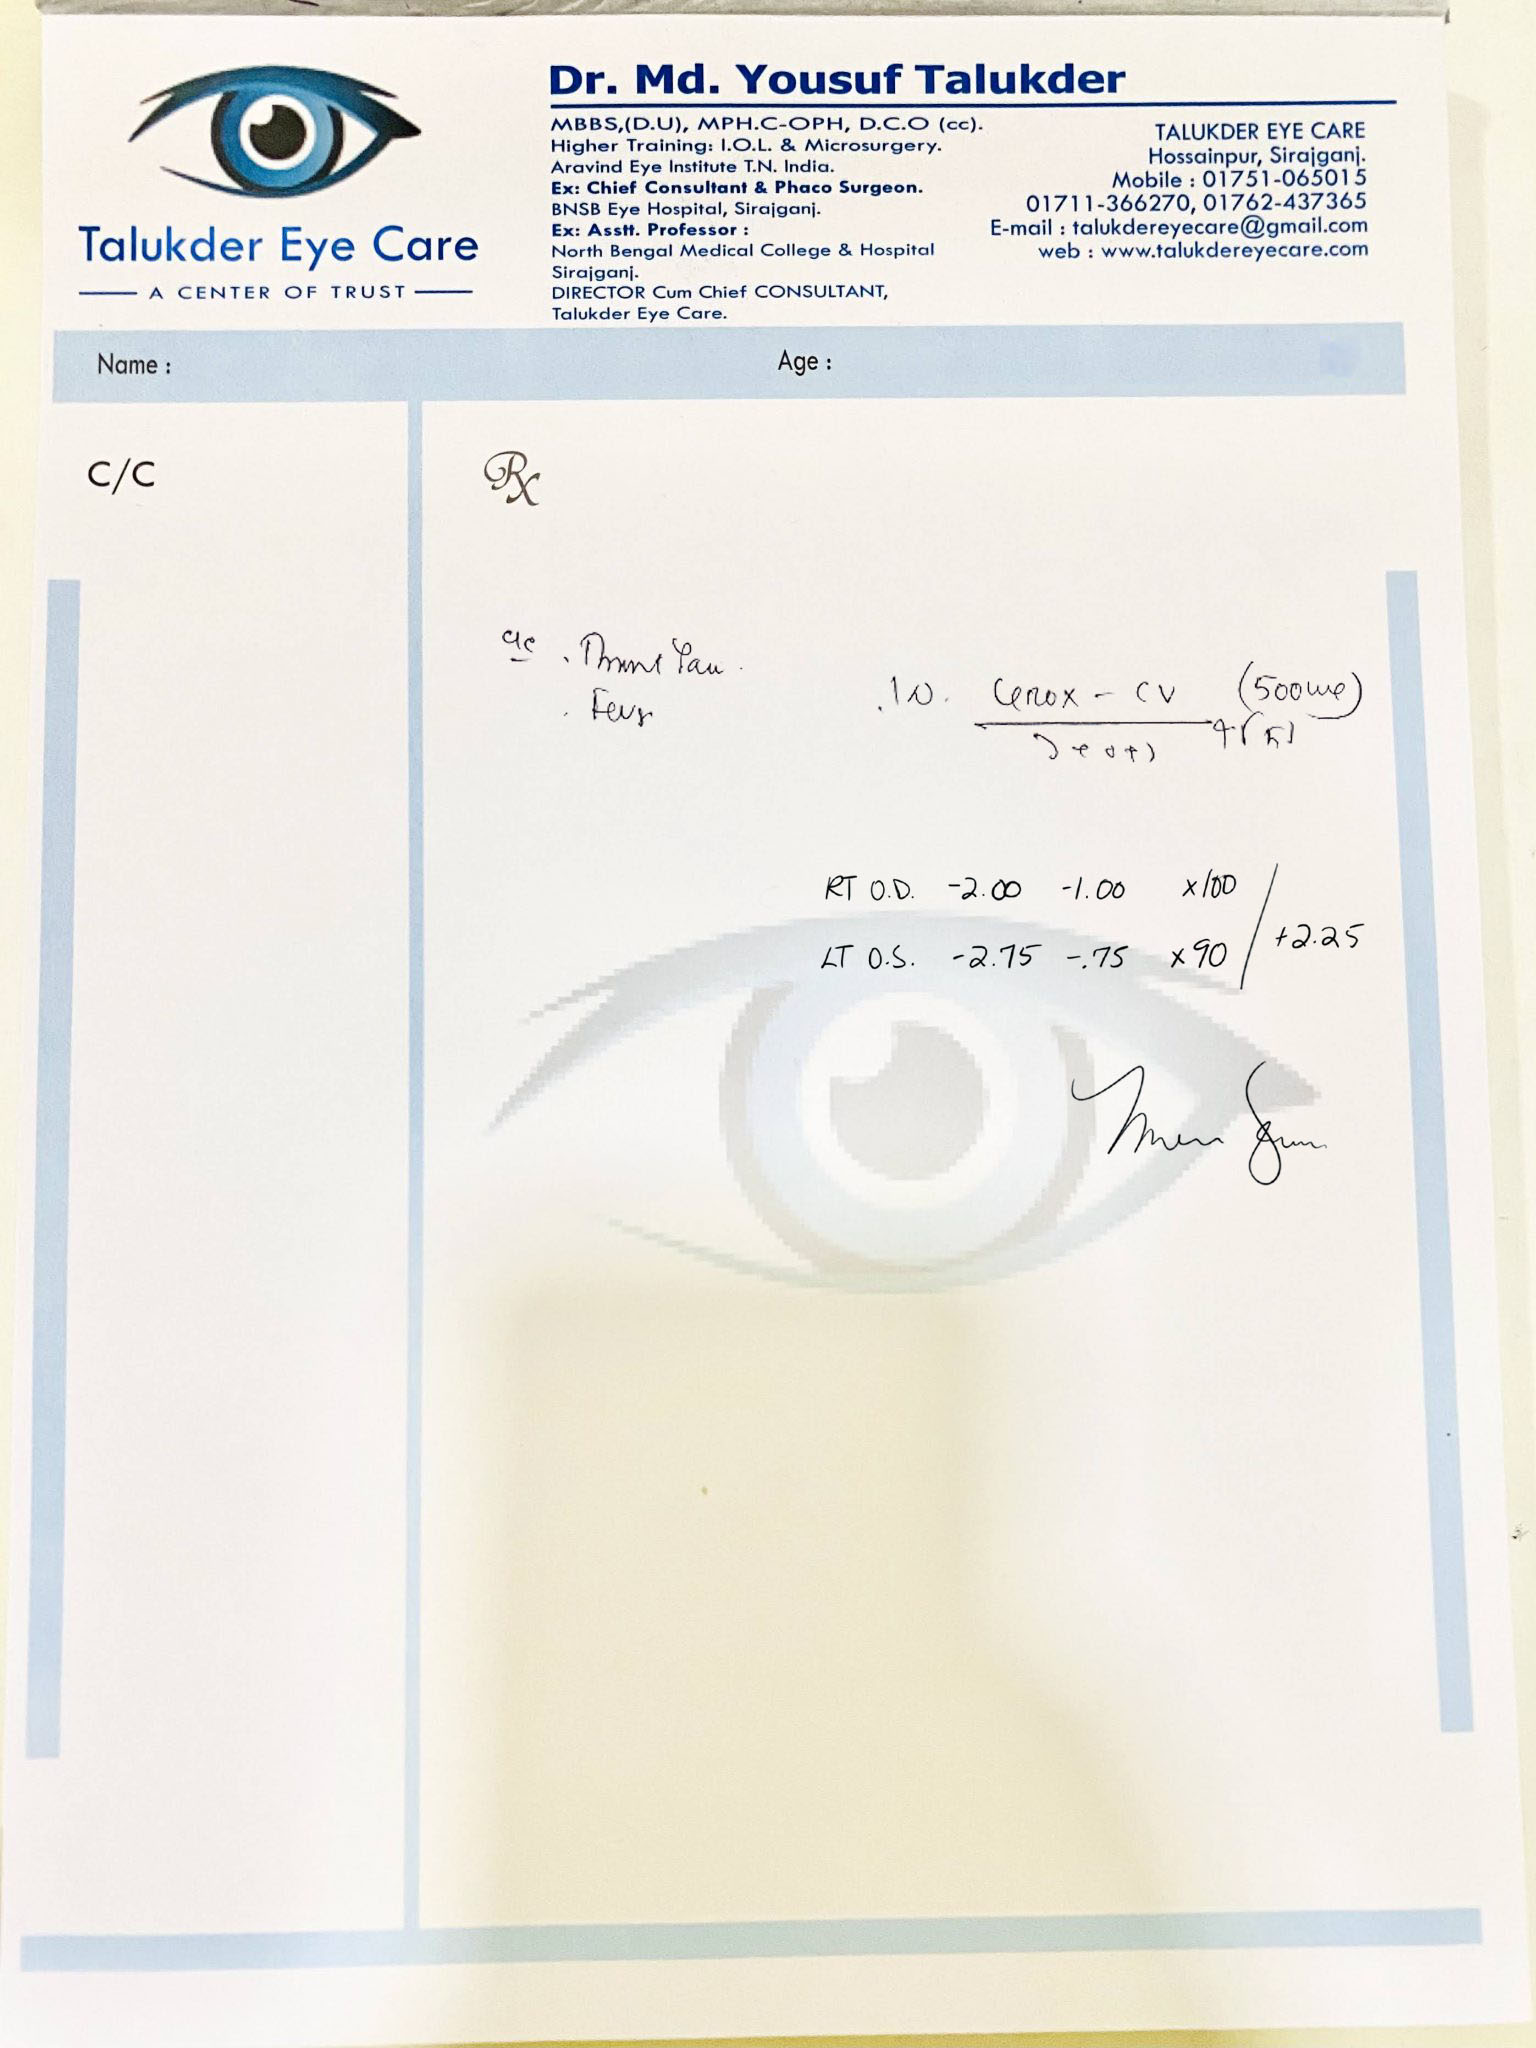 Talukder Eye Care
A CENTER OF TRUST
Dr. Md. Yousuf Talukder
MBBS,(D.U), MPH.C-OPH, D.C.O (cc).
Higher Training: I.O.L. & Microsurgery.
Aravind Eye Institute T.N. India.
Ex: Chief Consultant & Phaco Surgeon.
BNSB Eye Hospital, Sirajganj.
Ex: Asstt. Professor :
North Bengal Medical College & Hospital
Sirajganj.
DIRECTOR Cum Chief CONSULTANT,
Talukder Eye Care.
TALUKDER EYE CARE
Hossainpur, Sirajganj.
Mobile : 01751-065015
01711-366270, 01762-437365
E-mail : talukdereyecare@gmail.com
web : www.talukdereyecare.com
Name :
Age :
C/C
Rx
- CV (500
RT O.D. -2.00 -1.00 x100
LT O.S. -2.75 -.75 x90 / +2.25